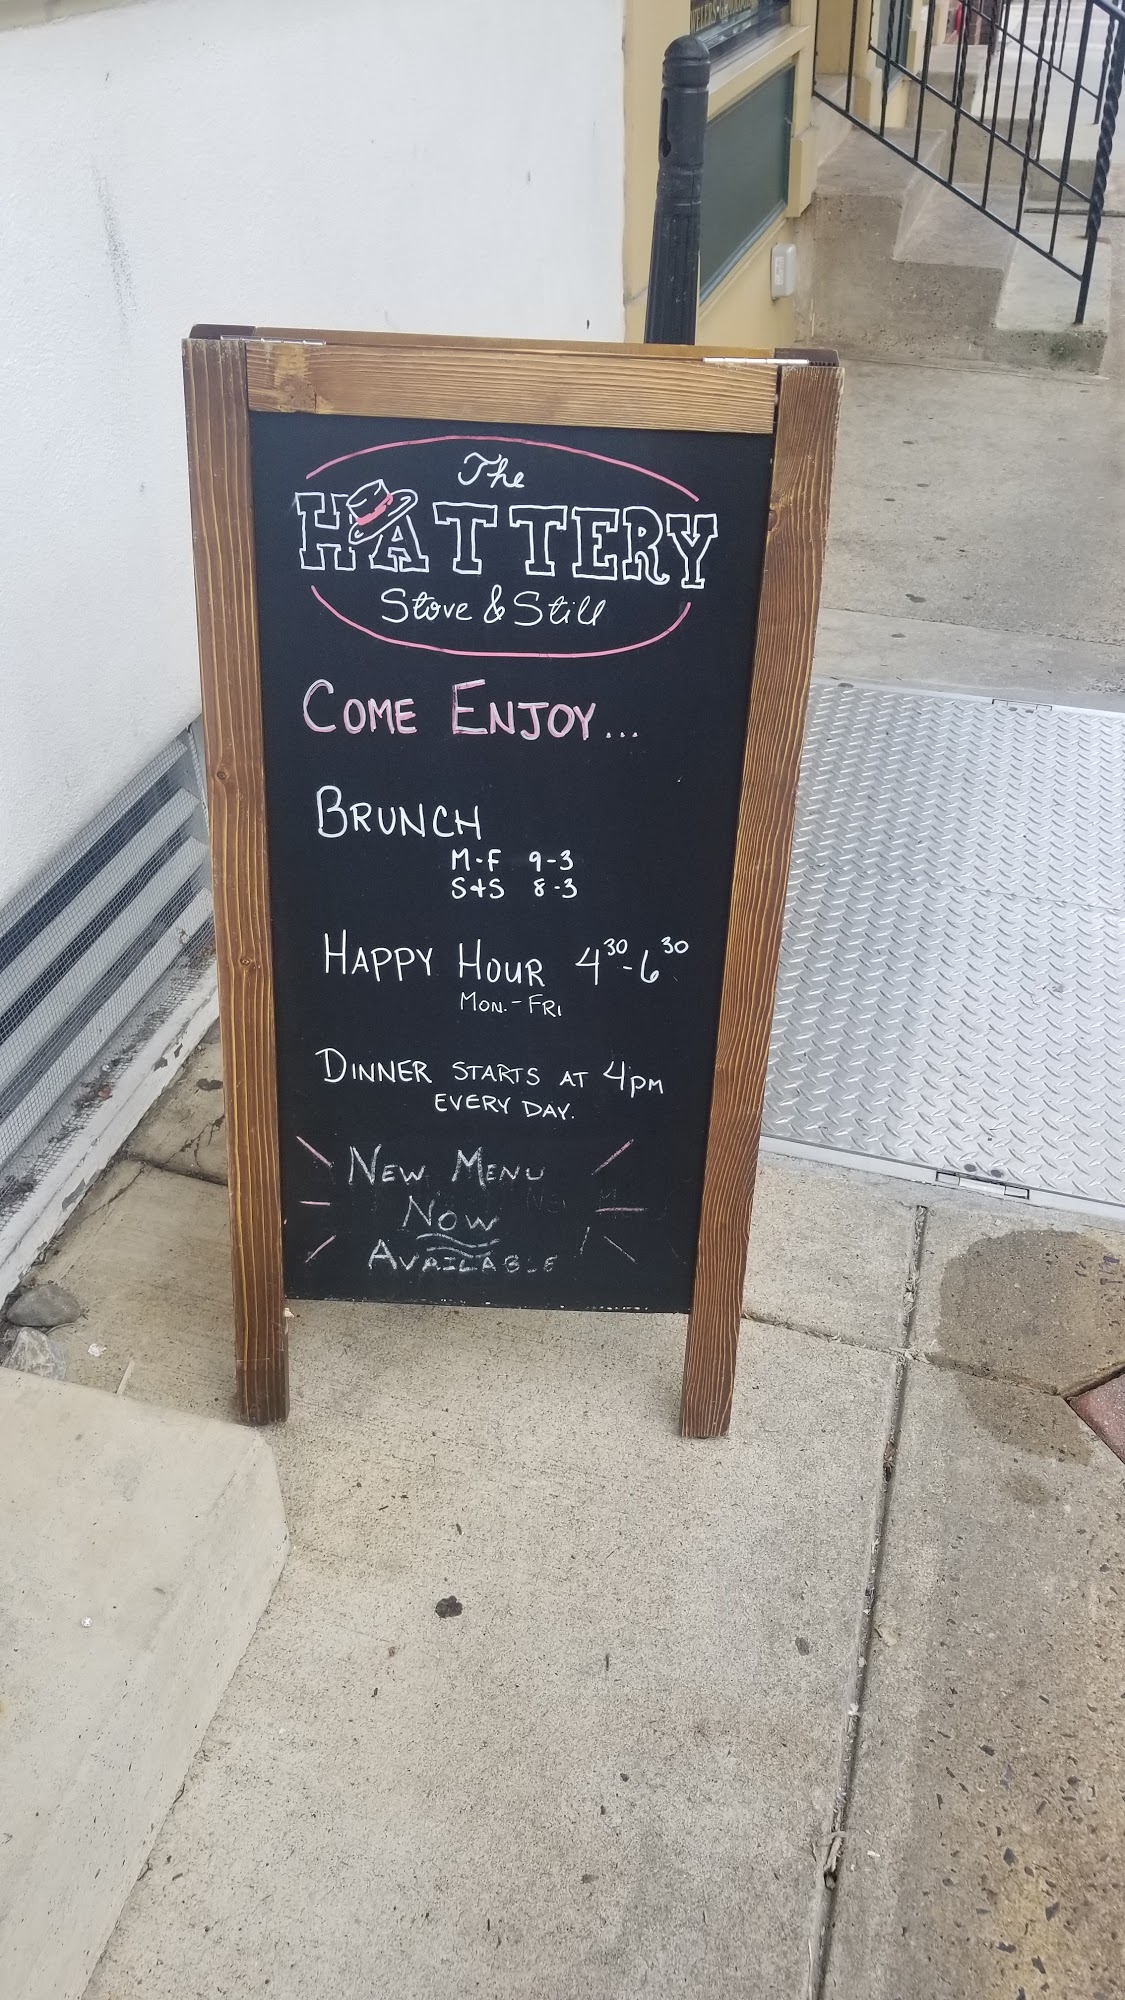 The
HATTERY
Stove & Still
COME ENJOY...
BRUNCH
M-F 9-3
S+S 8-3
HAPPY HOUR 4³⁰-6³⁰
MON.-FRI
DINNER STARTS AT 4PM
EVERY DAY.
NEW MENU
NOW
AVAILABLE